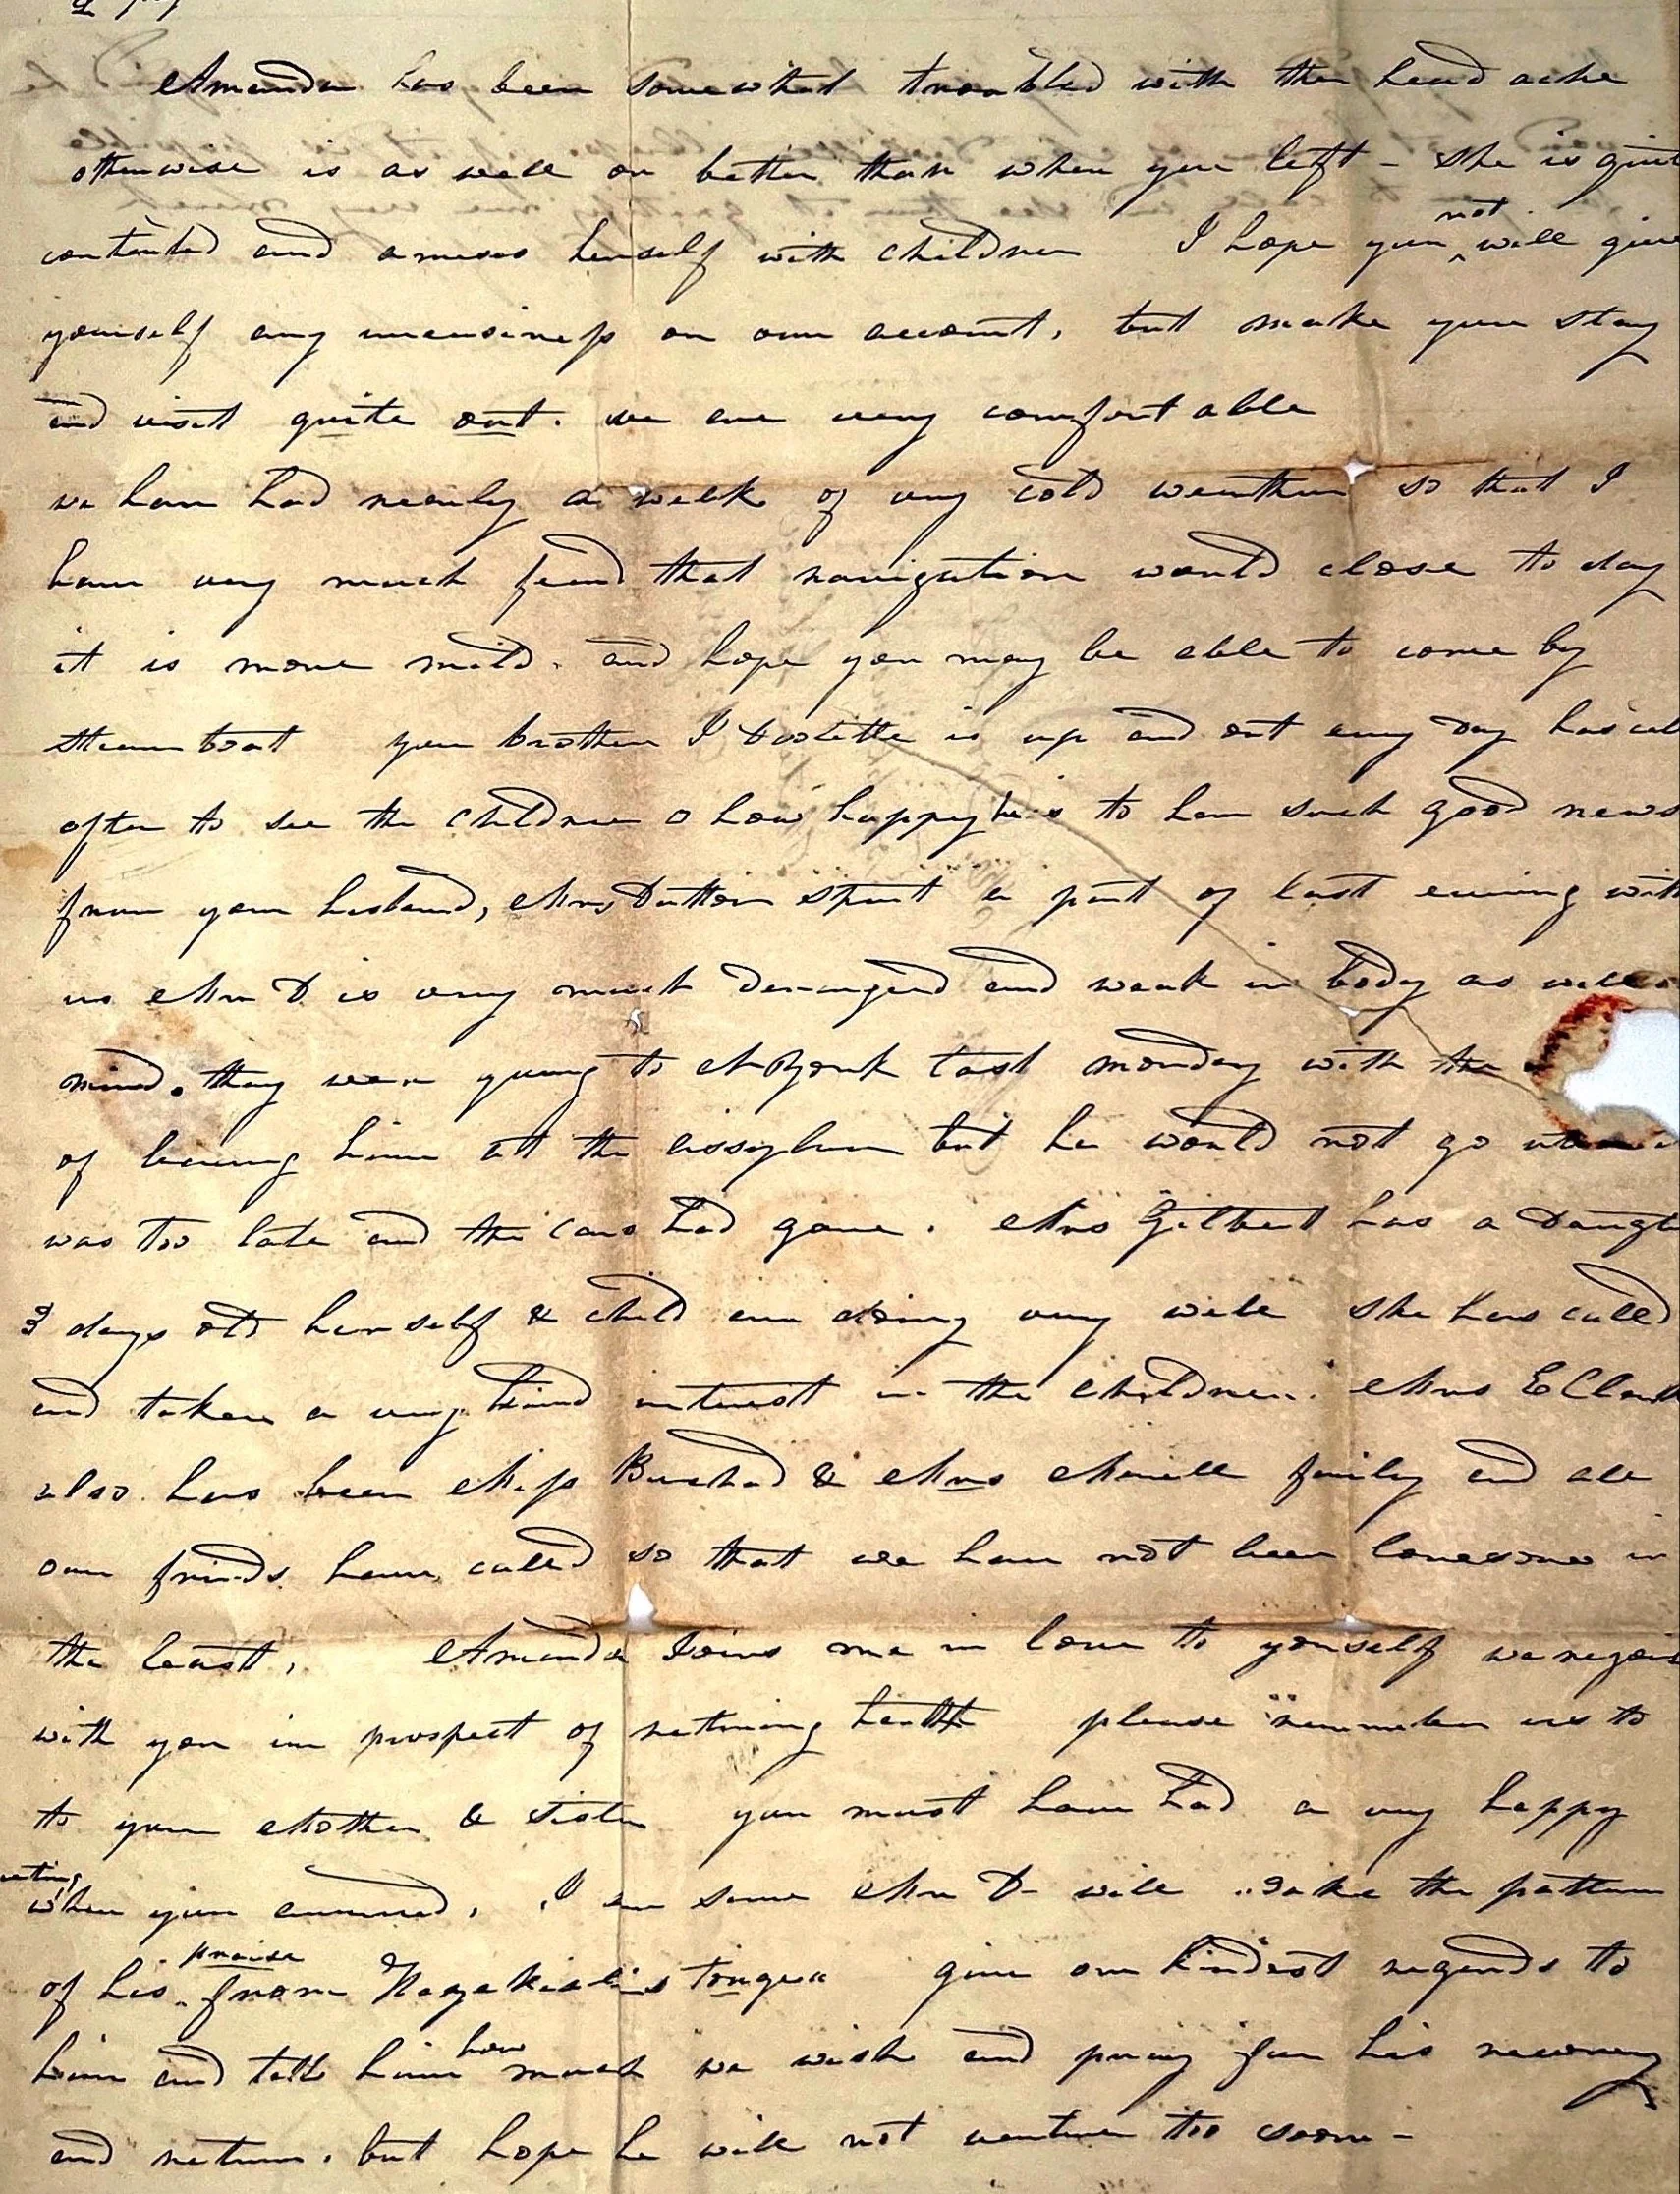 Amanda has been somewhat troubled with the head ache
otherwise is as well or better than when you left - she is quit
contented and amuses herself with children I hope you not will give
yourself any uneasiness on our account, but make your stay
and visit quite out. we are very comfortable
we have had nearly a week of very cold weather so that I
have very much feard that navigation would close to day
it is more mild. and hope you may be able to come by
steam boat your brother I Doolittle is up and out every day has call
often to see the children o how happy he is to have such good news
from your husband, Mrs Dutton spent a part of last evening with
us Mr D is very much deranged and weak in body as well
mind. they were going to N York last monday with the
of leaving him at the assylum but he would not go
was too late and the cars had gone. Mrs Gilbert has a Daught
3 days old herself & child are doing very well she has called
and taken a very kind interest in the children. Mrs E Clark
also has been Miss Bushnd & Mrs family and all
our frinds have called so that we have not been lonesome in
the least, Amanda Joins me in love to yourself we rejoi
with you in prospect of returning health please remember us to
to your Mother & Sister you must have had a very happy
eting
when you arrived, I am sure Mr D- will take the pattern
of his praise from tongue give our kindest regards to
him and tell him how much we wish and pray for his recovery
and return. but hope he will not venture too soon -